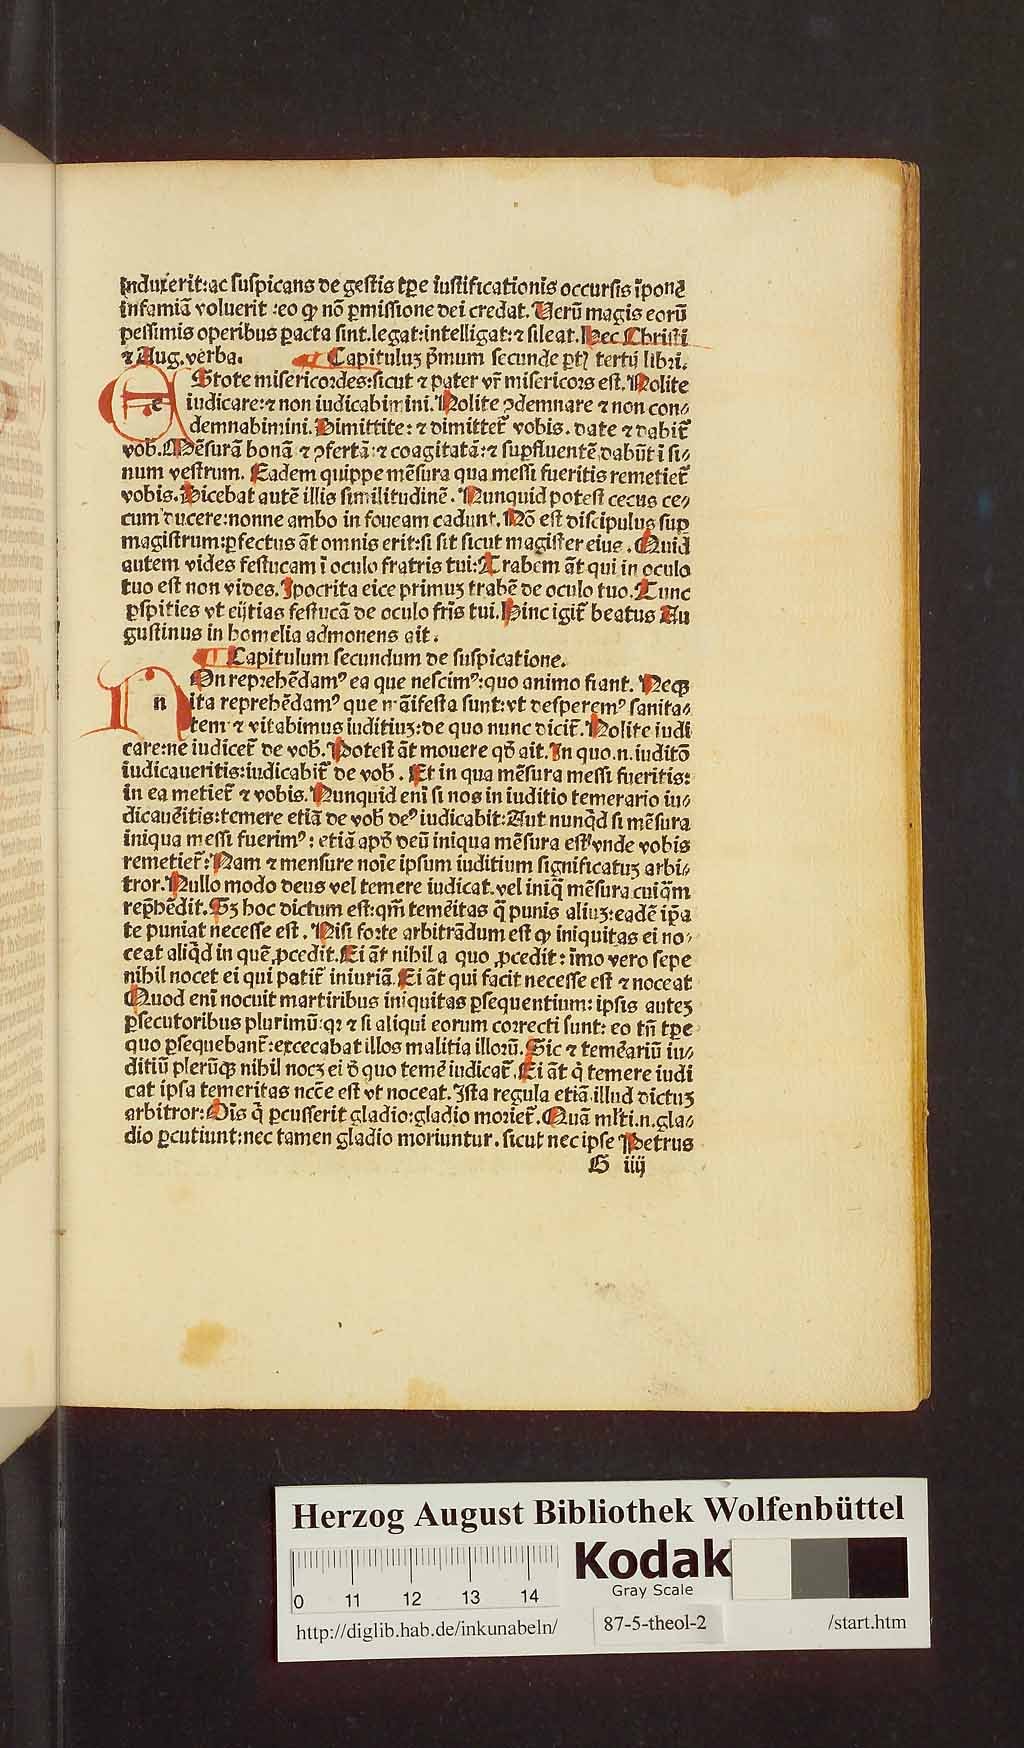 induxerit:ac suspicans de gestis tp̄e iustificationis occursis īponē
infamiā voluerit :eo ꝙ nō ꝑmissione dei credat. Uerū magis eorū
pessimis operibus ꝑacta sint.legat:intelligat:⁊ sileat. Hec Christi
⁊ Aug. verba. Capituluꝫ p̄mum secunde ꝑtꝭ tertij libri.
EStote misericordes:sicut ⁊ pater vr̄ misericors est. Nolite
iudicare:⁊ non iudicabimini. Nolite ꝯdemnare ⁊ non con⸗
demnabimini. Dimittite: ⁊ dimittet̄ vobis. date ⁊ dabit̄
vob̄. Mēsurā bonā ⁊ ꝯfertā ⁊ coagitatā:⁊ suꝑfluentē dabūt ī si⸗
num vestrum. Eadem quippe mēsura qua messi fueritis remetiet̄
vobis. Dicebat autē illis similitudinē. Nunquid potest cecus ce⸗
cum ducere:nonne ambo in foueam cadunt. Nō est discipulus suꝑ
magistrum:ꝑfectus āt omnis erit:si sit sicut magister eius. Quid
autem vides festucam ī oculo fratris tui:Trabem āt qui in oculo
tuo est non vides. Ipocrita eice primuꝫ trabē de oculo tuo. Tunc
ꝑspities vt eijtias festucā de oculo fr̄is tui. Hinc igit̄ beatus Au
gustinus in homelia admonens ait.
Capitulum secundum de suspicatione.
NOn reprehēdamꝰ ea que nescimꝰ:quo animo fiant. Necꝫ
ita reprehēdamꝰ que māifesta sunt:vt desperemꝰ sanita⸗
tem ⁊ vitabimus iuditiuꝫ:de quo nunc dicit̄. Nolite iudi
care:ne iudicet̄ de vob̄. Potest āt mouere qd̄ ait. In quo.n.iuditō
iudicaueritis:iudicabit̄ de vob̄. Et in qua mēsura messi fueritis:
in ea metiet̄ ⁊ vobis. Nunquid enī si nos in iuditio temerario iu⸗
dicauēitis:temere etiā de vob̄ deꝰ iudicabit:Aut nunqd̄ si mēsura
iniqua messi fuerimꝰ: etiā apd̄ deū iniqua mēsura est vnde vobis
remetiet̄: Nam ⁊ mensure noīe ipsum iuditium significatuꝫ arbi⸗
tror. Nullo modo deus vel temere iudicat.vel iniq̄ mēsura cuiq̄m
rep̄hēdit. Sꝫ hoc dictum est:qm̄ temēitas q̄ punis aliuꝫ:eadē ip̄a
te puniat necesse est. Nisi forte arbitrādum est ꝙ iniquitas ei no⸗
ceat aliq̄d in quē ꝓcedit. Ei āt nihil a quo ꝓcedit: īmo vero sepe
nihil nocet ei qui patit̄ iniuriā. Ei āt qui facit necesse est ⁊ noceat
Quod enī nocuit martiribus iniquitas ꝑsequentium: ipsis auteꝫ
ꝑsecutoribus plurimū:qꝛ ⁊ si aliqui eorum correcti sunt: eo tn̄ tp̄e
quo ꝑsequebant̄:excecabat illos malitia illorū. Sic ⁊ temēariū iu⸗
ditiū plerūqꝫ nihil nocꝫ ei d̄ quo temē iudicat̄. Ei āt q̄ temere iudi
cat ipsa temeritas ncc̄e est vt noceat. Ista regula etiā illud dictuꝫ
arbitror: Oīs q̄ ꝑcusserit gladio:gladio moriet̄. Quā ml̄ti.n.gla⸗
dio ꝑcutiunt:nec tamen gladio moriuntur. sicut nec ipse Petrus
G iiij
Herzog August Bibliothek Wolfenbüttel
Kodak
Gray Scale
0 11 12 13 14
http://diglib.hab.de/inkunabeln/ 87-5-theol-2 /start.htm